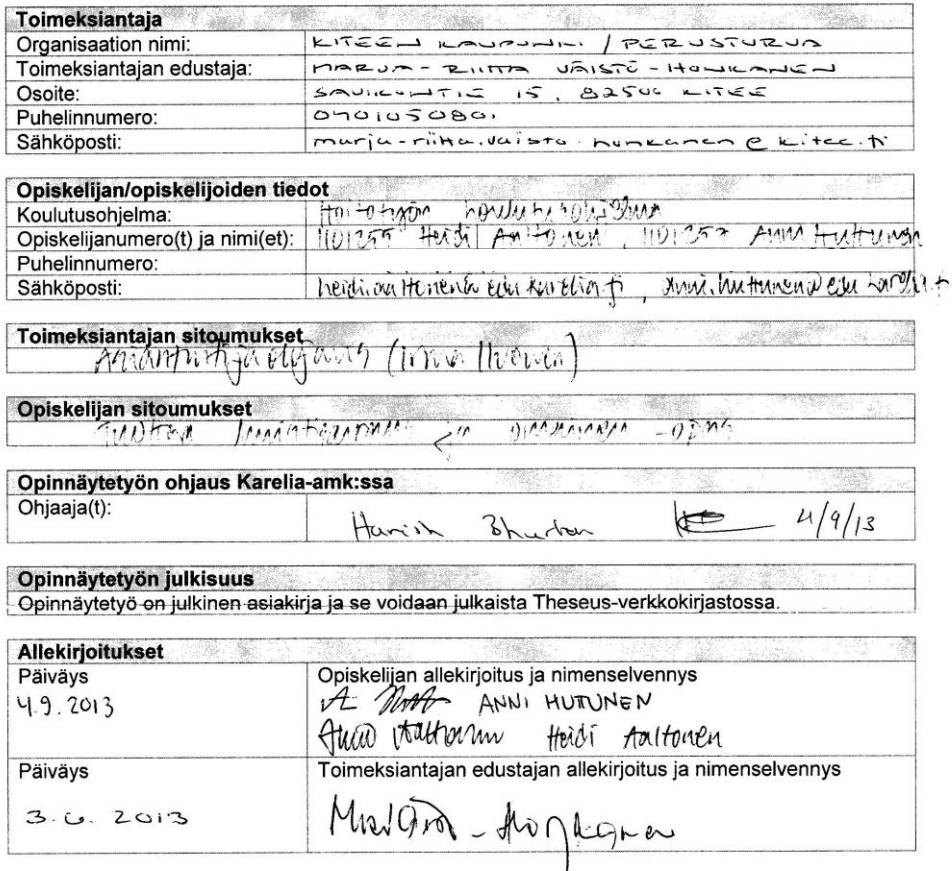 Toimeksiantaja
Organisaation nimi: KITEEN KAUPUNKI / PERUSTURVA
Toimeksiantajan edustaja: MARJA-RIITTA VÄISTÖ-HONKANEN
Osoite: SAVIKONTIE 15, 82500 KITEE
Puhelinnumero: 0401050801
Sähköposti: marja-riitta.vaisto-honkanen@kitee.fi
Opiskelijan/opiskelijoiden tiedot
Koulutusohjelma: Hoitotyön koulutusohjelma
Opiskelijanumero(t) ja nimi(et): 1101255 Heidi Aaltonen, 1101257 Anni Huttunen
Puhelinnumero:
Sähköposti: heidi.aaltonen@edu.karelia.fi, anni.huttunen@edu.karelia.f
Toimeksiantajan sitoumukset
Asiantuntijaohjaus (Irma Ilvonen)
Opiskelijan sitoumukset
Tuottaa -opas
Opinnäytetyön ohjaus Karelia-amk:ssa
Ohjaaja(t):
Harish 4/9/13
Opinnäytetyön julkisuus
Opinnäytetyö on julkinen asiakirja ja se voidaan julkaista Theseus-verkkokirjastossa.
Allekirjoitukset
Päiväys Opiskelijan allekirjoitus ja nimenselvennys
4.9.2013 ANNI HUTTUNEN
Heidi Aaltonen
Päiväys Toimeksiantajan edustajan allekirjoitus ja nimenselvennys
3.6.2013